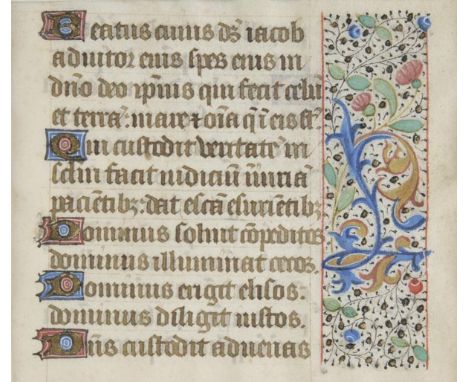 Beatus cuius dꝰ iacob
adiutor eius spes eius in
dn̄o deo ipius qui fecit celū
et terrā: mare ⁊ oīa q̄ ī eis st̄
Qui custodit veritatē in
sclm̄ facit iudiciū iniuriā
paciētibꝫ: dat escā esuriētibꝫ
Dominus soluit cōpeditos
dominus illuminat cecos.
Dominus erigit elisos.
dominus diligit iustos.
Dn̄s custodit aduenas